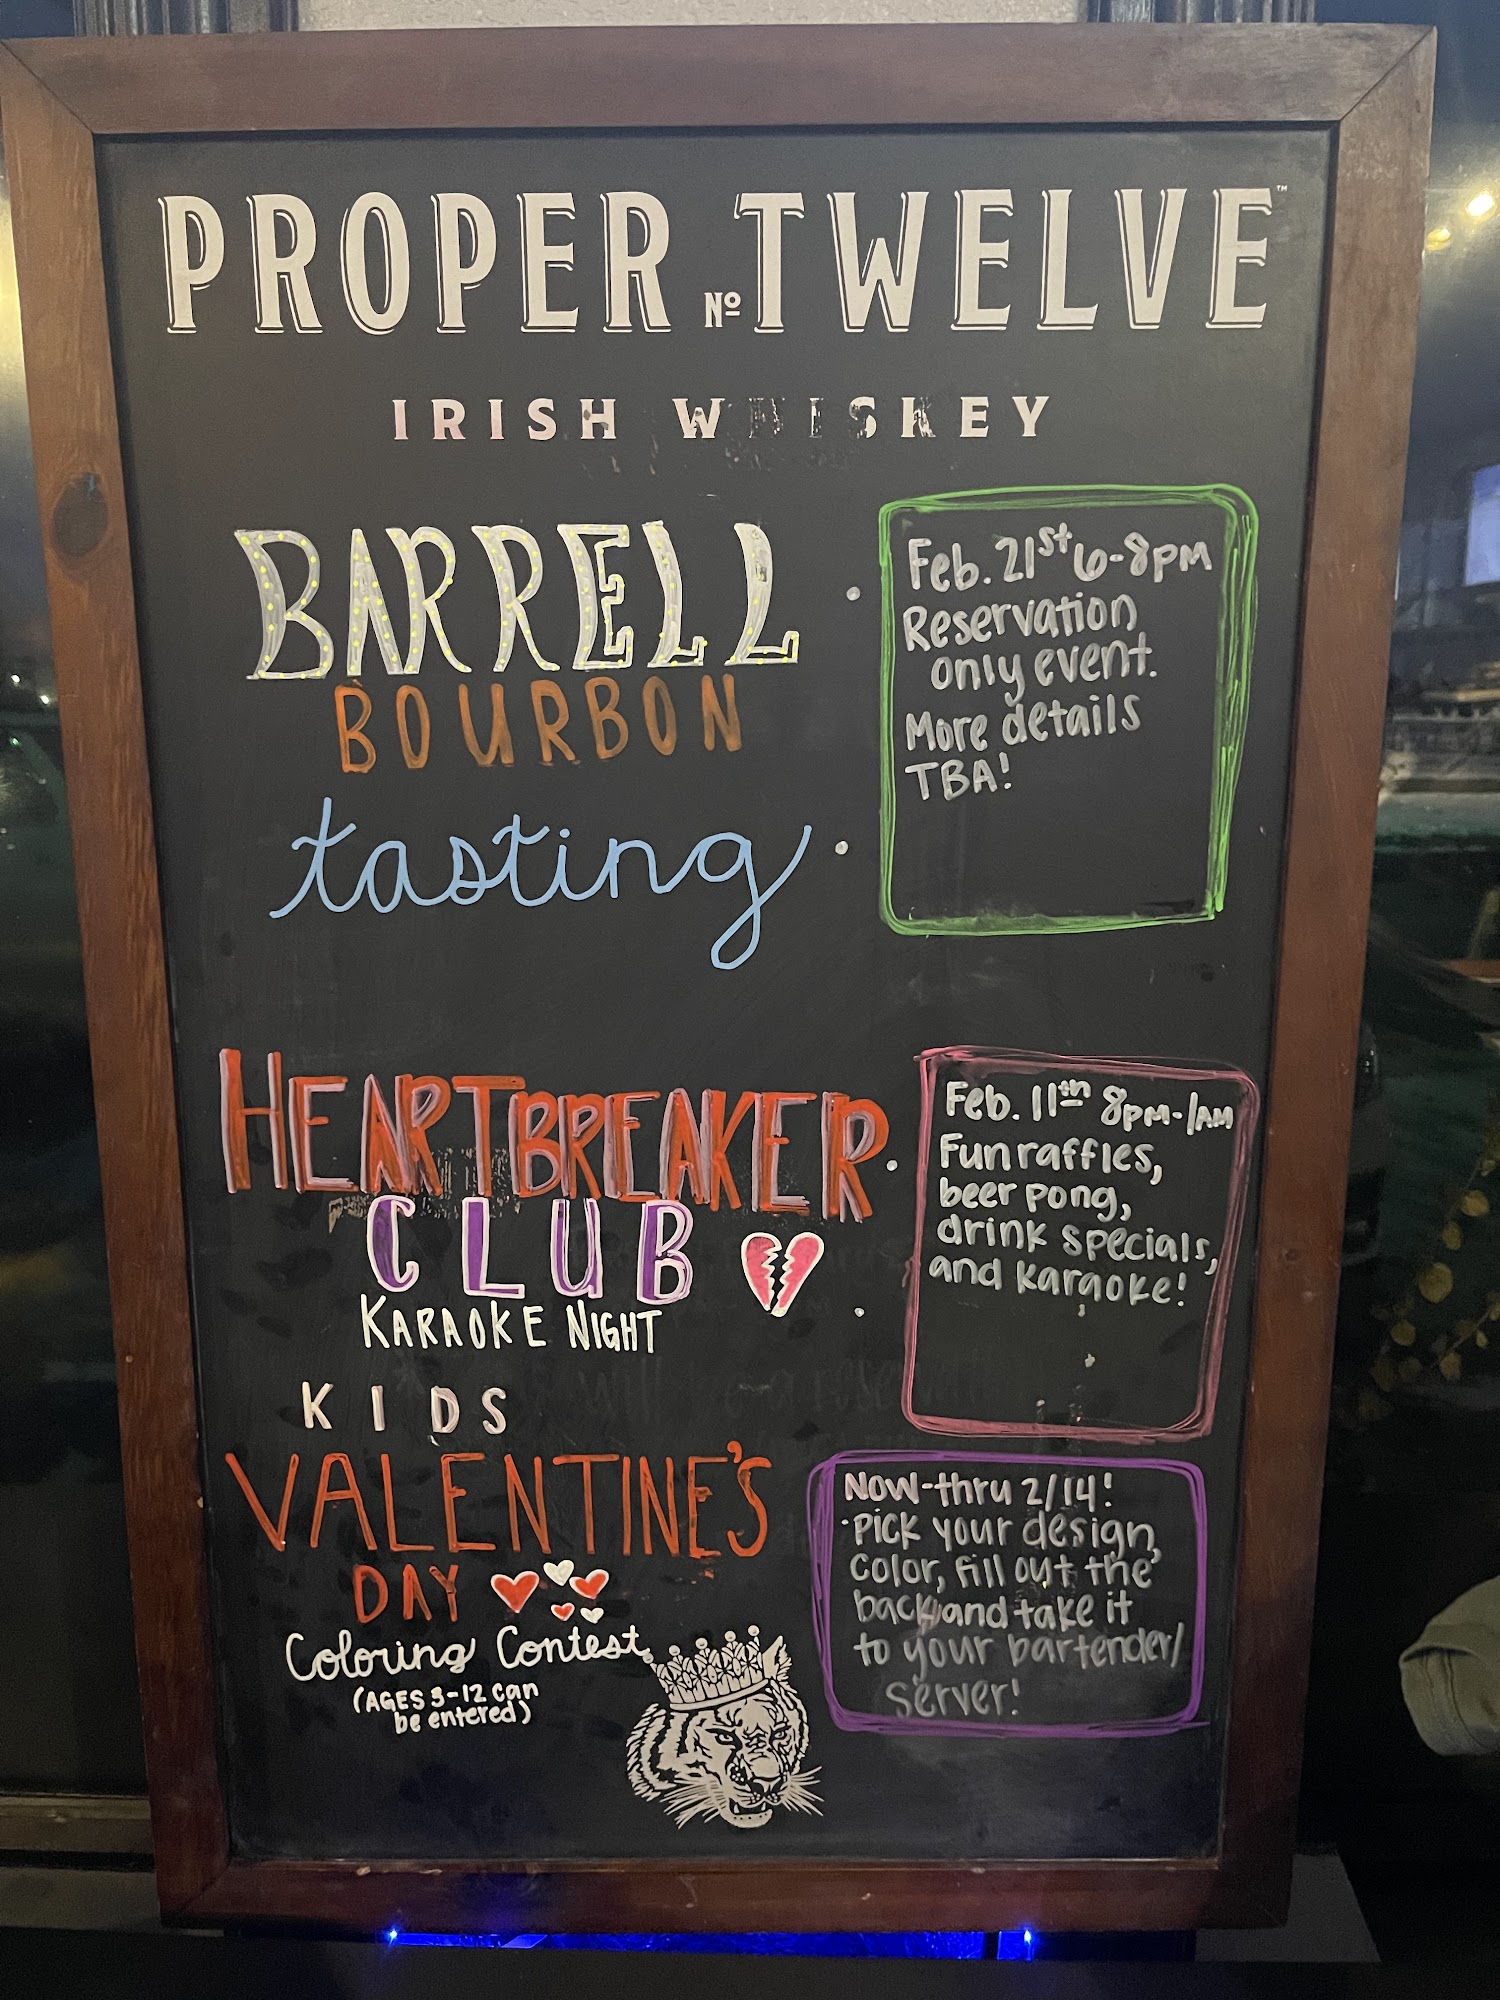 PROPER Nº TWELVE™
IRISH WHISKEY
BARRELL
BOURBON
tasting
Feb. 21st 6-8PM
Reservation
only event.
More details
TBA!
HEARTBREAKER
CLUB
KARAOKE NIGHT
Feb. 11th 8PM-1AM
Fun raffles,
beer pong,
drink specials,
and karaoke!
KIDS
VALENTINE'S
DAY
Coloring Contest
(AGES 3-12 can
be entered)
Now-thru 2/14!
Pick your design,
color, fill out the
back and take it
to your bartender/
server!